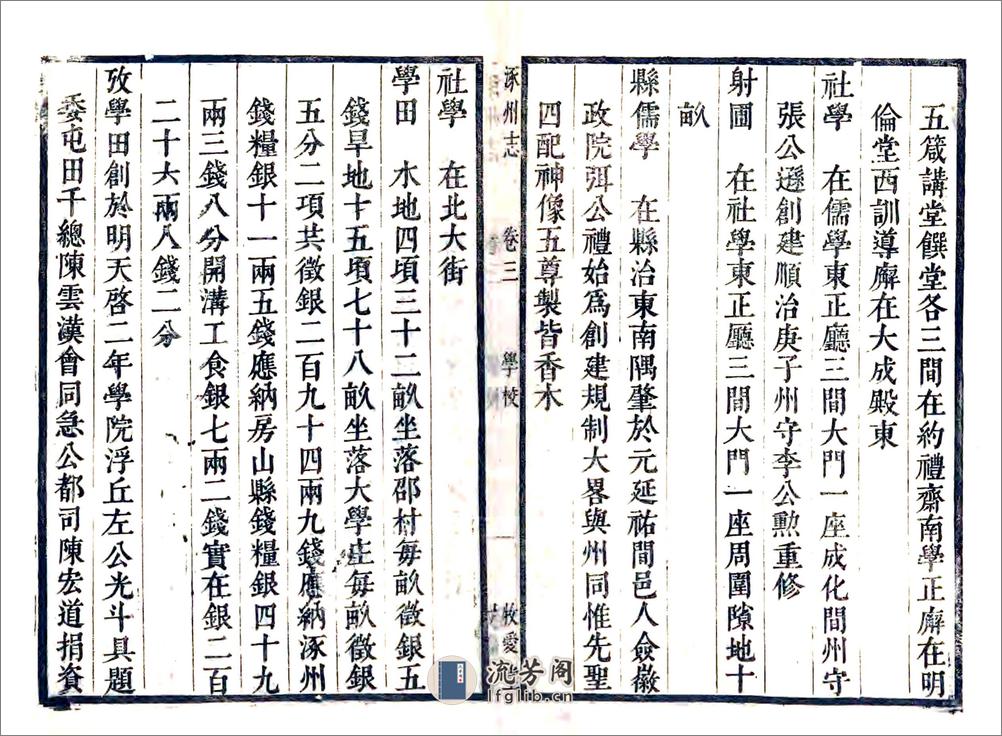 五箴講堂饌堂各三間在約禮齋南學正廨在明
倫堂西訓導廨在大成殿東
社學　在儒學東正廳三間大門一座成化間州守
張公遜創建順治庚子州守李公勲重修
射圃　在社學東正廳三間大門一座周圍隙地十
畝
縣儒學　在縣治東南隅肇於元延祐間邑人僉徽
政院弭公禮始爲創建規制大畧與州同惟先聖
四配神像五尊製皆香木
涿州志　卷三　學校　一
社學　在北大街
學田　水地四頃三十二畝坐落邵村每畝徵銀五
錢旱地十五頃七十八畝坐落大學庄每畝徵銀
五分二項共徵銀二百九十四兩九錢應納涿州
錢糧銀十一兩五錢應納房山縣錢糧銀四十九
兩三錢八分開溝工食銀七兩二錢實在銀二百
二十六兩八錢二分
攷學田創於明天啓二年學院浮丘左公光斗具題
委屯田千總陳雲漢會同急公都司陳宏道捐資
流芳阁
lfglib.cn